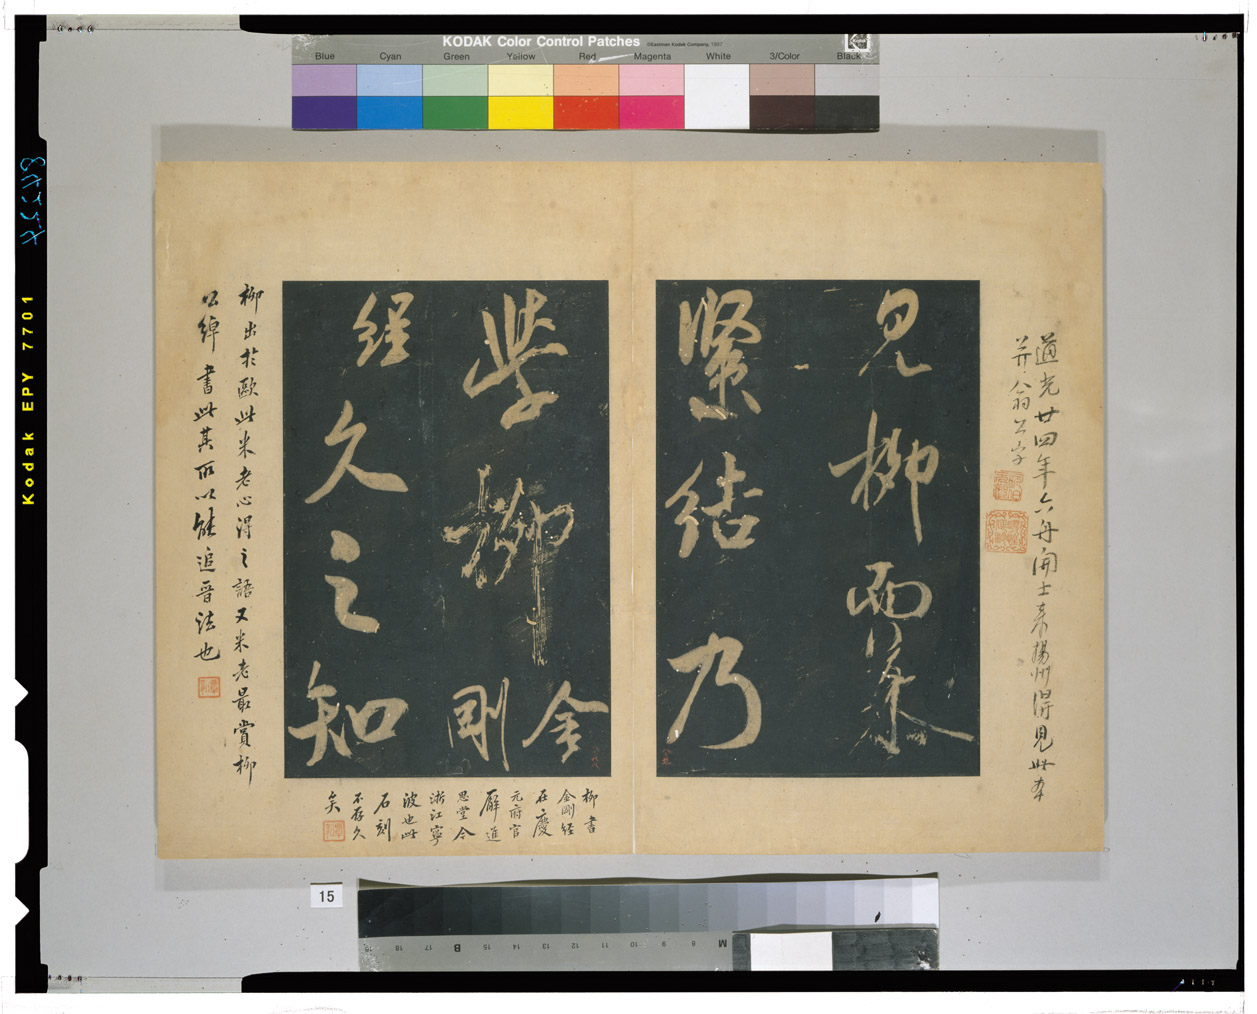 KODAK Color Control Patches
©Eastman Kodak Company, 1997
Kodak
Blue Cyan Green Yellow Red Magenta White 3/Color Black
Kodak EPY 7701
道光廿四年六舟開士来揚州得見此本
并翁公字
見柳而慕
緊結乃
學柳金剛
經久之知
柳書
金剛經
在慶
元府官
廨進
思堂今
浙江寧
波也此
石刻
不存久
矣
柳出於歐此米老心得之語又米老最賞柳
公綽書此其所以能追晉法也
15
18 17 B 15 14 13 12 11 10 9 8 M